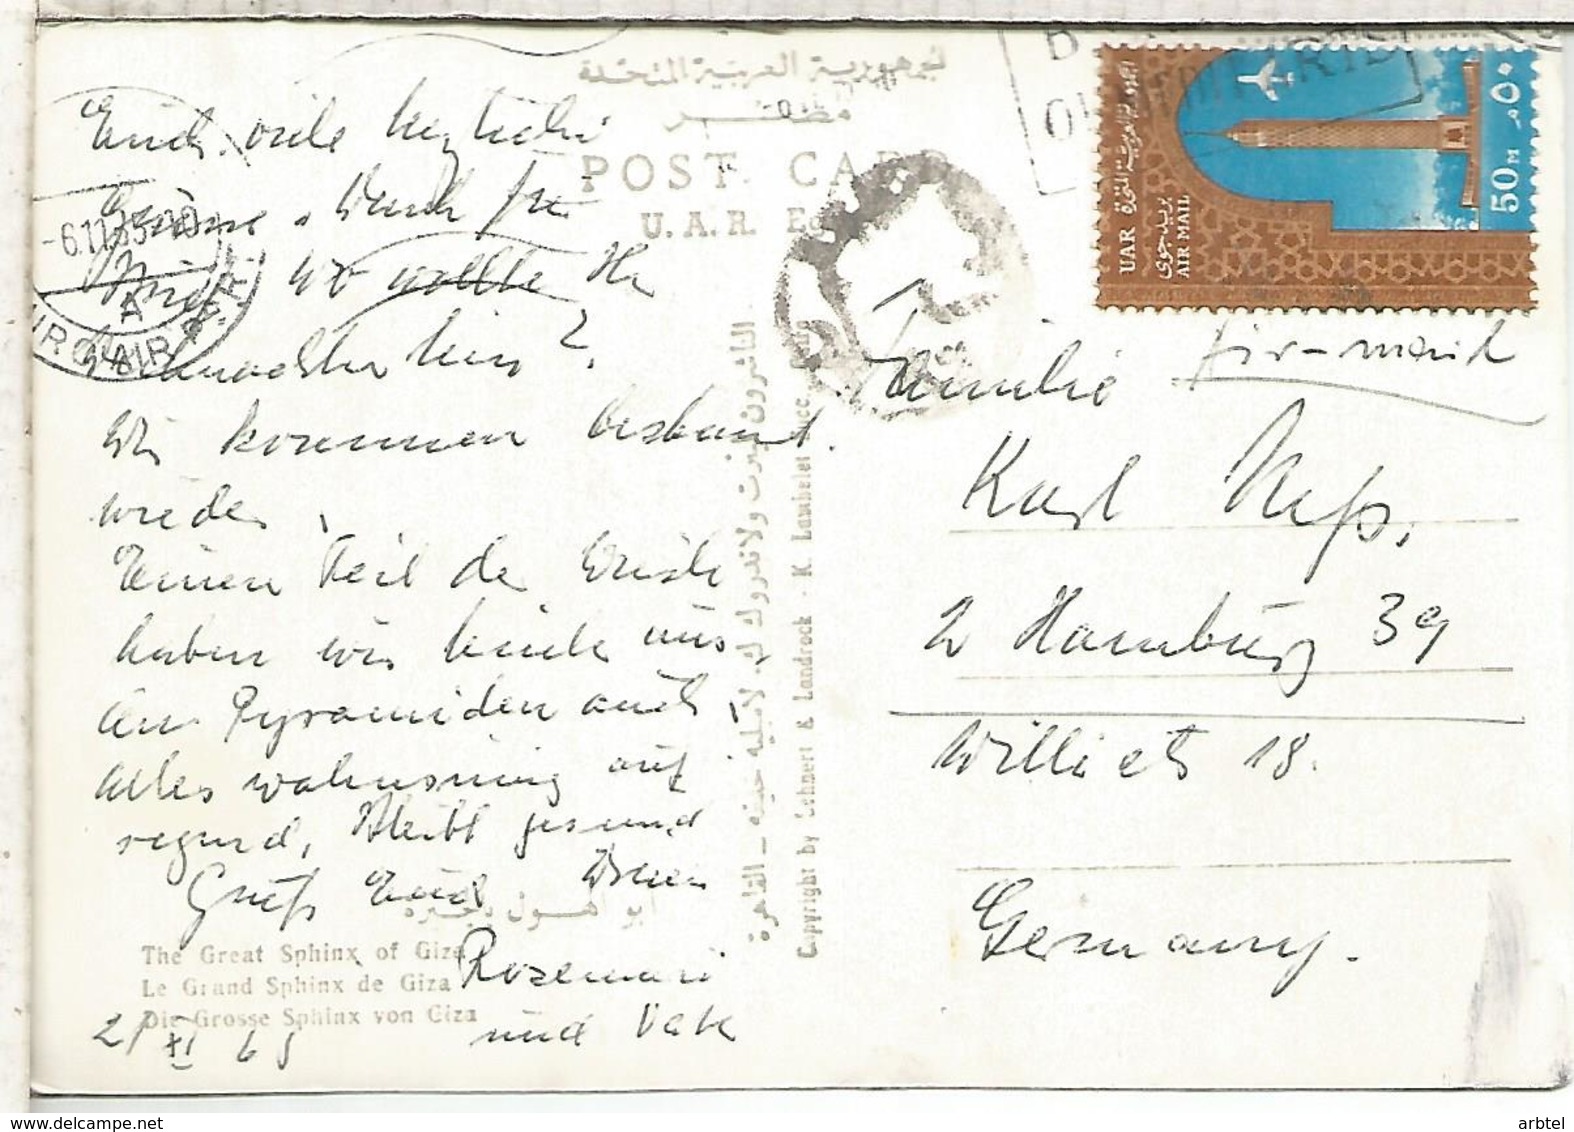 الجمهورية العربية المتحدة
مصر
POST CARD
U. A. R. Eg
Euch viele herzliche
Grüsse.
wo wollte Ihr
hin?
Wir kommen bestimmt
wieder,
Einen Teil der
haben wir heute aus
den Pyramiden auch,
Alles wahnsinnig auf
regend, Bleibt gesund
Gruß Euch
Rosemarie
und
2/XI 65
أبو الهول بالجيزة
The Great Sphinx of Giza
Le Grand Sphinx de Giza
Die Grosse Sphinx von Giza
الناشرون لينرت ولاندروك ك. لامبليه خليفته - القاهرة
Copyright by Lehnert & Landrock - K. Lambelet Succ. Cairo
-6.11.65
AIR
بريد جوى
UAR AIR MAIL
50 M
٥٠ م
Familie
Air-mail
Karl
2 Hamburg 39
Willistr 18.
Germany.
arbtel